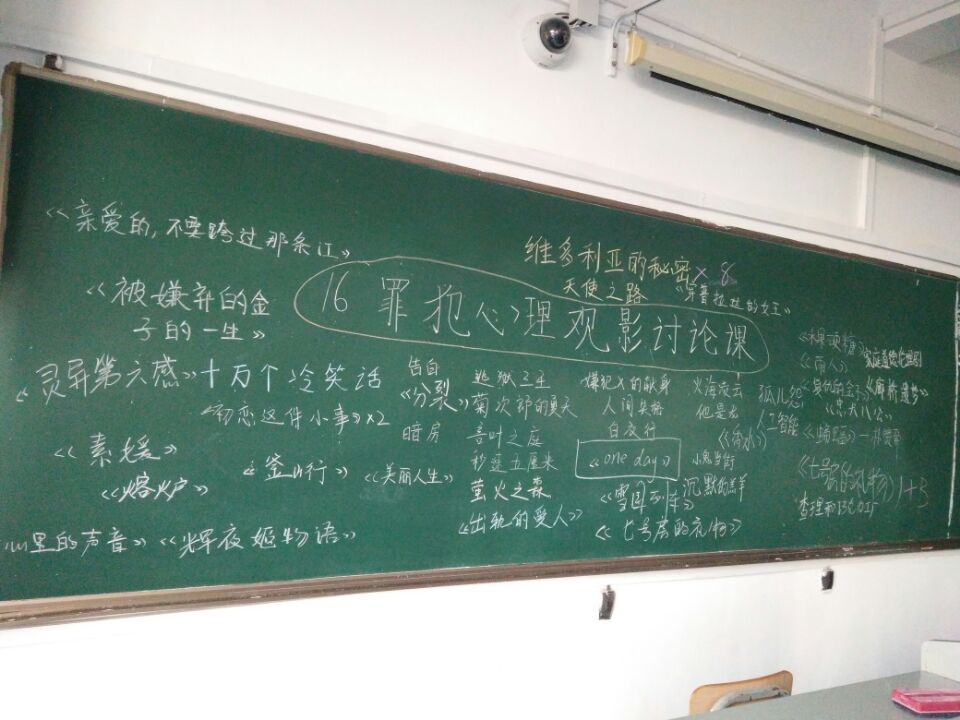 《亲爱的,不要跨过那条江》
维多利亚的秘密 × 8
天使之路
《穿普拉达的女王》
16 罪犯心理观影讨论课
《被嫌弃的
子的一生》
《灵异第六感》
十万个冷笑话
《初恋这件小事》×2
《素媛》
《熔炉》
《釜山行》
《美丽人生》
心里的声音》
《辉夜姬物语》
告白
《分裂》
暗房
逃狱三王
菊次郎的夏天
言叶之庭
秒速五厘米
萤火之森
《出轨的爱人》
嫌犯X的献身
人间失格
白夜行
《one day》
《雪国列车》
《七号房的礼物》
火海凌云
他是龙
小鬼当街
沉默的羔羊
孤儿怨
人工智能
《雨人》
《忠犬八公》
《七号房的礼物》1+3
查理和巧克力工厂